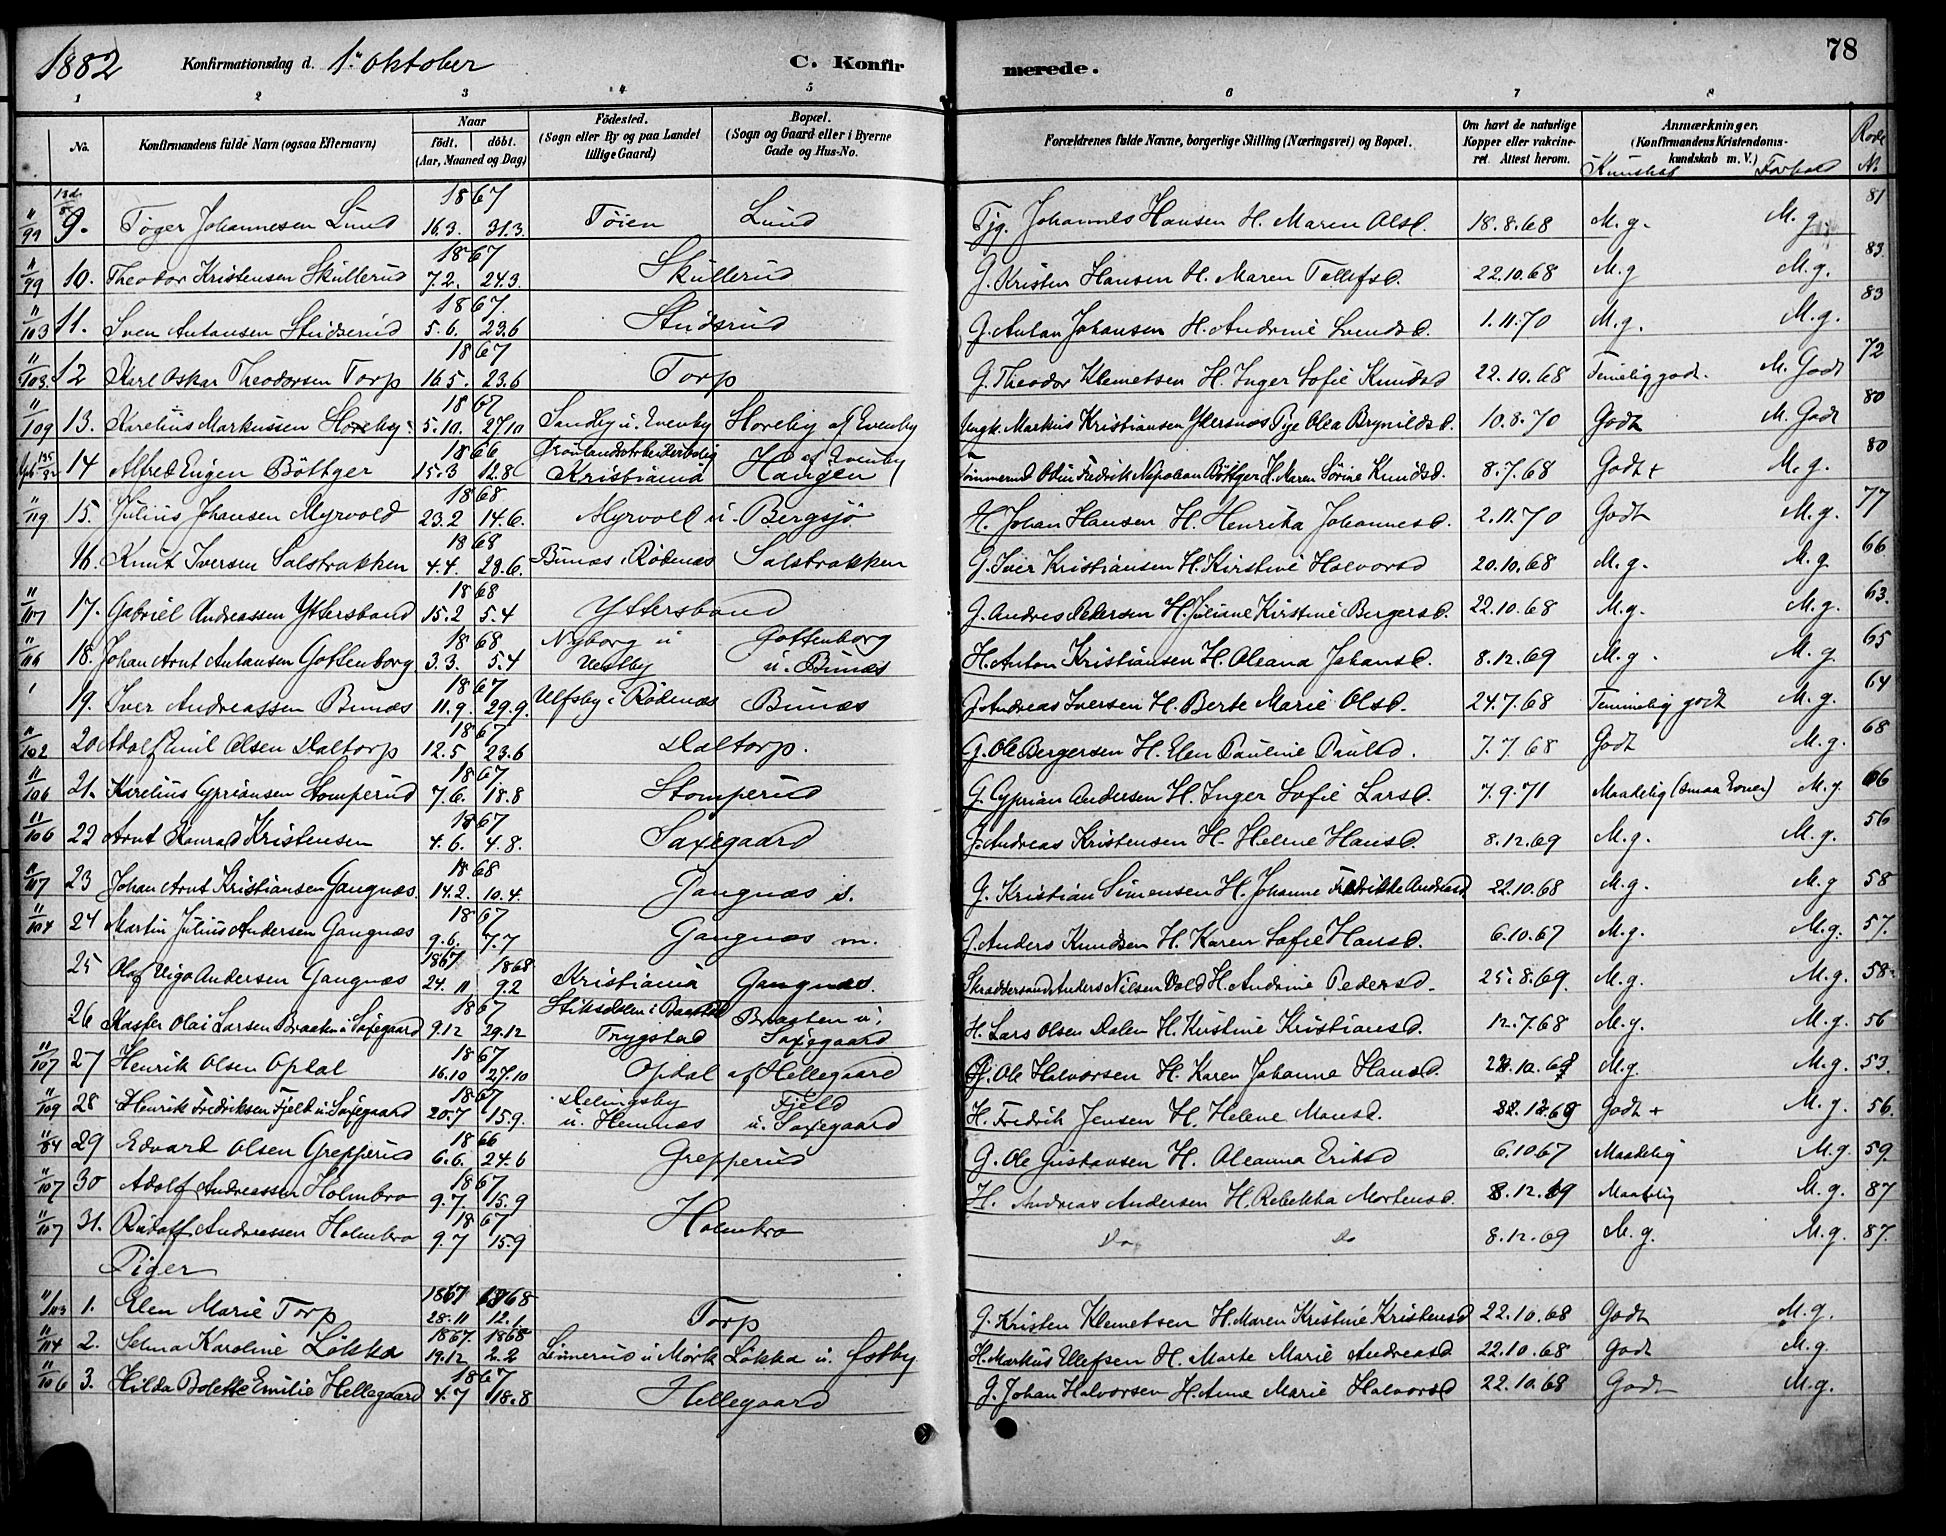 1882 Konfirmationsdag d. 1. Oktober C. Konfir merede. 78
1 2 3 4 5 6 7 8
No. Konfirmandens fulde Navn (ogsaa Efternavn) Naar födt. döbt. (Aar, Maaned og Dag) Födested. (Sogn eller By og paa Landet tillige Gaard) Bopæl. (Sogn og Gaard eller i Byerne Gade og Hus-No. Forældrenes fulde Navne, borgerlige Stilling (Næringsvei) og Bopæl. Om havt de naturlige Kopper eller vakcineret. Attest herom. Anmærkninger. (Konfirmandens Kristendomskundskab m. V.) Kundskab Forhold Rode N.
"/99 9. Töger Johannesen Lund 1867 16.3. 31.3. Töien Lund Tjg. Johannes Hansen H. Maren Olsd. 18.8.68 M.g. M.g 81
"/99 10. Theodor Kristensen Skullerud 1867 7.2. 24.3. Skullerud G. Kristen Hansen H. Maren Tollefsd. 22.10.68 M.g M.g. 83
"/103 11. Sven Antonsen Studserud 1867. 5.6. 23.6 Studsrud G. Anton Johansen H. Andrine Svendsd. 1.11.70 M.g. M.g. 83
"/103. 12 Karl Oskar Theodorsen Torp 1867 16.5. 23.6 Torp G. Theodor Klemetsen H. Inger Sofie Knudsd 22.10.68 Temelig godt. M. Godt 72
"/109 13. Karelius Markussen Horeby 1867 5.10. 27.10 Sandby u. Evenby Horeby af Evenby Ungk. Markus Kristiansen Ytersnes Pige Olea Brynildsd. 10.8.70 Godt M. Godt 80
14 Alfred Eugen Böttger 1866 15.3 12.8 Grönlands Arbeiderbolig Kristiania Haugen af Evenby Tömmermd Olvin Fredrik Napoleon Böttger H. Maren Sörine Knudsd. 8.7.68 Godt + M.g. 80
"/119 15. Julius Johansen Myrvold 1868 23.2 14.6. Myrvold u. Bergsjö H. Johan Hansen H. Henrika Johannesd. 2.11.70 Godt M.g. 77
16. Knut Iversen Salstrakken 1868 4.4. 28.6. Bunæs i Rödenæs Salstrakken G. Iver Kristiansen H. Kirstine Halvorsd 20.10.68 M.g. M.g. 66
"/107 17. Gabriel Andreassen Yttersband 1868 15.2 5.4 Yttersband G. Andres Pedersen H. Juliane Kirstine Bergersd. 22.10.68 M.g. M.g. 63.
"/116 18. Johan Arnt Antonsen Gottenborg 1868 3.3. 5.4 Nyborg u Vestby Gottenborg u. Bunæs H. Anton Kristiansen H. Oleana Johansd. 8.12.69 M.g. M.g. 65
19. Iver Andreassen Bunæs 1867 11.9. 29.9. Ulfsby i Rödenæs Bunæs G. Andreas Iversen H. Berte Marie Olsd. 24.7.68 Temmelig godt M.g. 64
"/102 20 Adolf Emil Olsen Daltorp 1867 12.5 23.6 Daltorp. G. Ole Bergersen H. Elen Pauline Paulsd. 7.7.68 Godt M.g. 68
"/106 21. Karelius Cypriansen Stomperud 1867. 7.6. 18.8 Stomperud G. Cyprian Andersen H. Inger Sofie Larsd. 7.9.71 Maadelig (smaa Evner) M.g. 66
"/106 22 Arnt Konrad Kristensen 1867 4.6. 4.8. Saxegaard G. Andreas Kristensen H. Helene Hansd. 8.12.69 M.g. M.g. 56
"/117 23 Johan Arnt Kristiansen Gangnæs 1868 14.2. 10.4. Gangnæs s. G. Kristian Simensen H. Johanne Fredrikke Andreasd 22.10.68 M.g. M.g 58
"/104 24 Martin Julius Andersen Gangnæs 1867 9.6. 7.7 Gangnæs m. G. Anders Knudsen H. Karen Sofie Hansd. 6.10.67 M.g. M.g. 57.
25 Olaf Vigo Andersen Gangnæs 1867 1868 24.11 9.2 Kristiania Gangnæs. Skræddersvend Anders Nilsen Vold H. Andrine Pedersd. 25.8.69. M.g. M.g. 58.
26 Kasper Olai Larsen Braaten u. Saxegaard 1867 9.12 29.12 i Baastad Trygstad Braaten u. Saxegaard H. Lars Olsen Dalen H. Kirstine Kristiansd. 12.7.68 M.g. M.g. 56
"/107 27 Henrik Olsen Opdal 1867 16.10 27.10 Opdal af Hellegaard G. Ole Halvorsen H. Karen Johanne Hansd. 22.10.68 M.g. M.g. 53.
"/109 28 Henrik Fredriksen Fjeld u. Saxegaard 1867 20.7 15.9. Delingsby u. Hemnæs Fjeld u. Saxegaard H. Fredrik Jensen H. Helene Monsd. 22.12.69 Godt + M.g. 56.
"/84 29 Edvard Olsen Grepperud 1866 6.6. 24.6 Grepperud G. Ole Gustavsen H. Oleanna Eriksd 6.10.67 Maadelig M.g. 59.
"/107 30 Adolf Andreassen Holmbro 1867 9.7. 15.9 Holmbro H. Andreas Andersen H. Rebekka Mortensd. 8.12.69 Maadelig M.g. 87
"/107 31. Rudolf Andreassen Holmbro 1867 9.7 15.9 Do Do 8.12.69 M.g. M.g. 87.
Piger
"/103 1. Elen Marie Torp 1867 1868 28.11 12.1. Torp G. Kristen Klemetsen H. Maren Kristine Kristensd 22.10.68 Godt M.g.
"/114 2. Selma Karoline Lökka 1867. 1868 19.12 2.2 Linnerud u Mørk Lökka u. Østby H. Markus Ellefsen H. Marte Marie Andreasd 22.10.68 Godt M.g
"/106 3. Hilda Bolette Emilie Hellegaard 1867 4.7 18.8 Hellegaard G. Johan Halvorsen H. Anne Marie Halvorsd 22.10.68 Godt M.g.